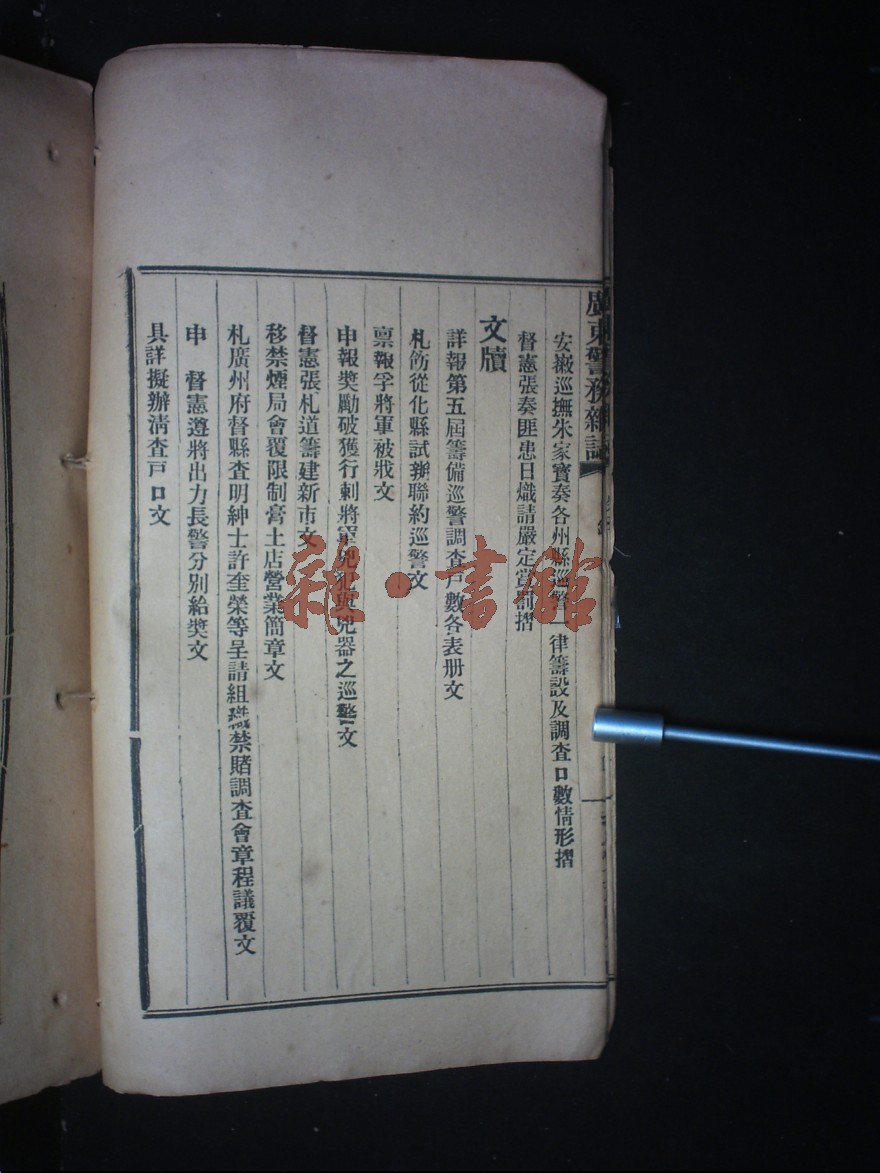 廣東警務雜誌
安徽巡撫朱家寶奏各州縣巡警一律籌設及調查口數情形摺
督憲張奏匪患日熾請嚴定賞罰摺
文牘
詳報第五屆籌備巡警調查戶數各表册文
札飭從化縣試辦聯約巡警文
稟報孚將軍被戕文
申報獎勵破獲行刺將軍兇犯與兇器之巡警文
督憲張札道籌建新市文
移禁煙局會覆限制膏土店營業簡章文
札廣州府督縣查明紳士許奎榮等呈請組織禁賭調查會章程議覆文
申　督憲遵將出力長警分別給奬文
具詳擬辦清查戶口文
雜·書館